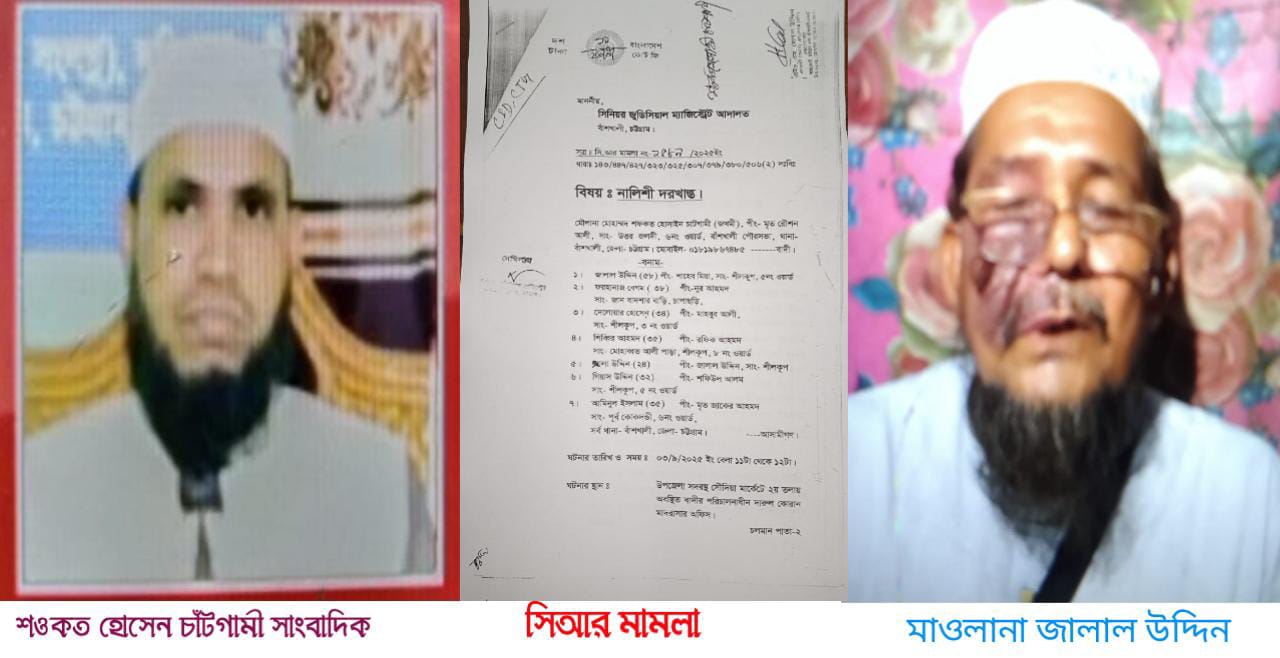 দশ
টাকা
বাংলাদেশ
কোর্ট ফি
মাননীয়,
সিনিয়র জুডিসিয়াল ম্যাজিস্ট্রেট আদালত
বাঁশখালী, চট্টগ্রাম।
সূত্রঃ সি.আর মামলা নং- /২০২৫ইং
ধারাঃ ১৪৩/৪৪৭/৪২৭/৩২৩/৩২৫/৩০৭/৩৭৯/৩৮০/৫০৬(২) দঃবিঃ
বিষয় ঃ নালিশী দরখাস্ত।
মৌলানা মোহাম্মদ শফকত হোসাইন চাটগামী (জখমী), পীং- মৃত রৌশন
আলী, সাং- উত্তর জলদী, ৬নং ওয়ার্ড, বাঁশখালী পৌরসভা, থানা-
বাঁশখালী, জেলা- চট্টগ্রাম। মোবাইল- ০১৮১৯৮৬৭৪৮৫ -------বাদী।
-বনাম-
১। জালাল উদ্দিন (৫৮) পীং- শাহেব মিয়া, সাং- শীলকূপ, ৫নং ওয়ার্ড
২। ফরহানাজ বেগম ( ৩৮) পীং-নুর আহমদ
সাং- জান বাদশার বাড়ি, চাপাছড়ি,
৩। দেলোয়ার হোসেন (৩৪) পীং- মাহবুব আলী,
সাং- শীলকূপ, ৩ নং ওয়ার্ড
৪। শিব্বির আহমদ (৩৫) পীং- রফিক আহমদ
সাং- মোহাব্বত আলী পাড়া, শীলকূপ, ৮ নং ওয়ার্ড
৫। উদ্দিন (২৪) পীং- জালাল উদ্দিন, সাং- শীলকূপ
৬। গিয়াস উদ্দিন (৩২) পীং- শফিউল আলম
সাং- শীলকূপ, ৫ নং ওয়ার্ড
৭। আমিনুল ইসলাম (৩৫) পীং- মৃত জাকের আহমদ
সাং- পূর্ব কোকদন্ডী, ৬নং ওয়ার্ড,
সর্ব থানা- বাঁশখালী, জেলা- চট্টগ্রাম। ----আসামীগন।
ঘটনার তারিখ ও সময় ঃ ০৩/৯/২০২৫ ইং বেলা ১১টা থেকে ১২টা।
ঘটনার স্থান ঃ উপজেলা সদরস্থ সৌদিয়া মার্কেটে ২য় তলায়
অবস্থিত বাদীর পরিচালনাধীন দারুল কোরান
মাদরাসার অফিস।
চলমান পাতা-২
শওকত হোসেন চাঁটগামী সাংবাদিক
সিআর মামলা
মাওলানা জালাল উদ্দিন